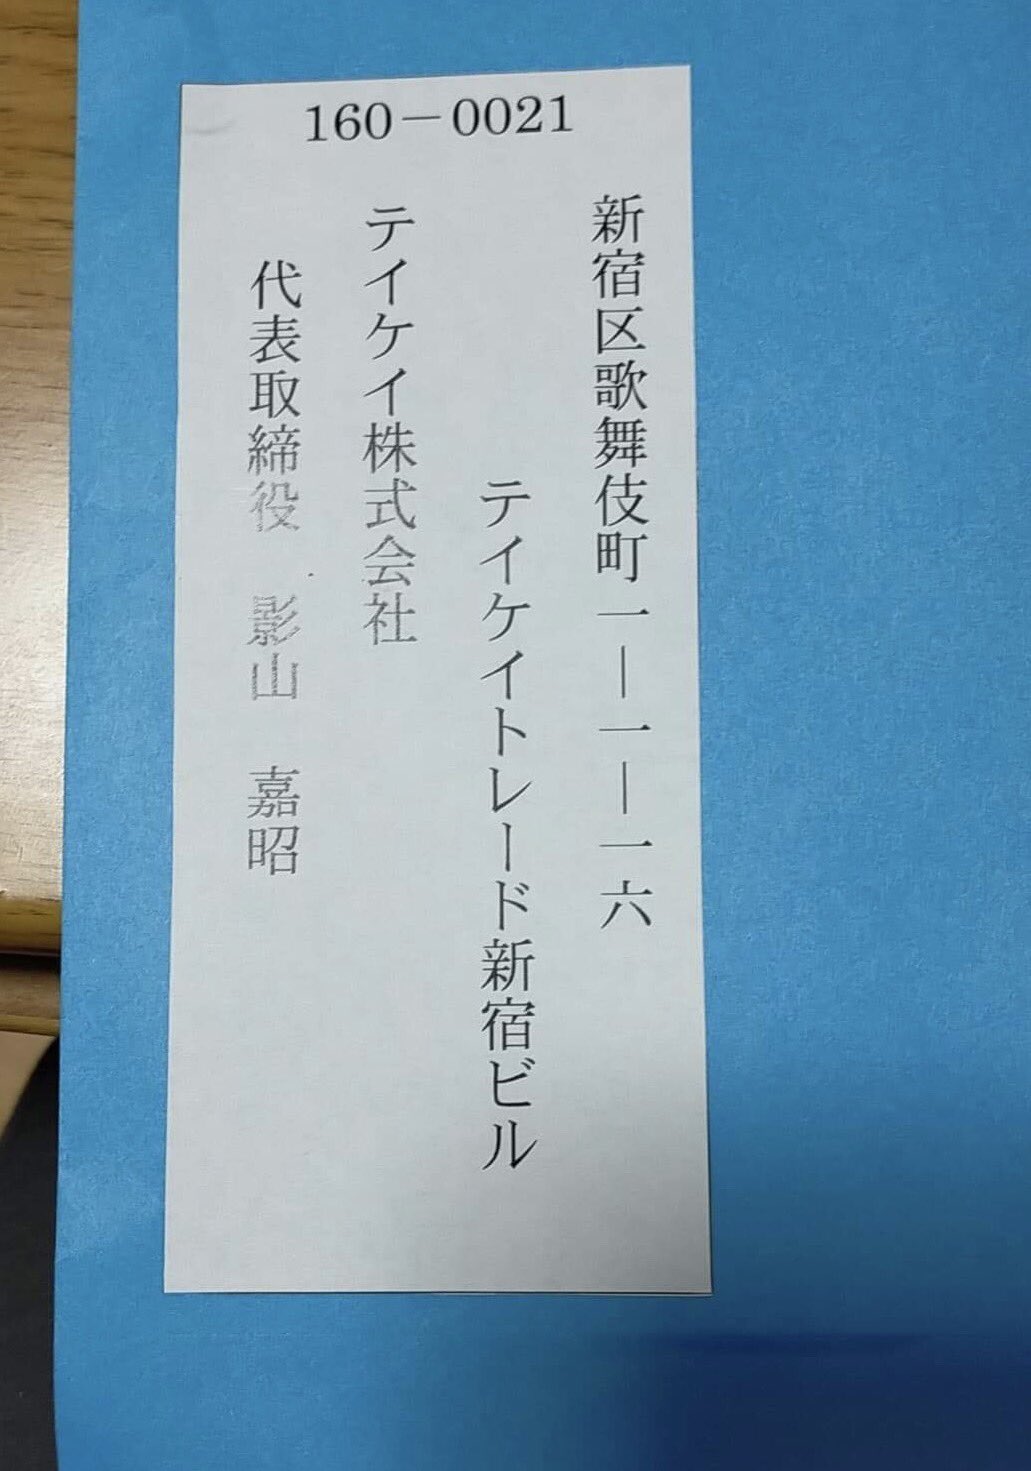 160－0021
新宿区歌舞伎町一―一―一六
テイケイトレード新宿ビル
テイケイ株式会社
代表取締役　影山　嘉昭